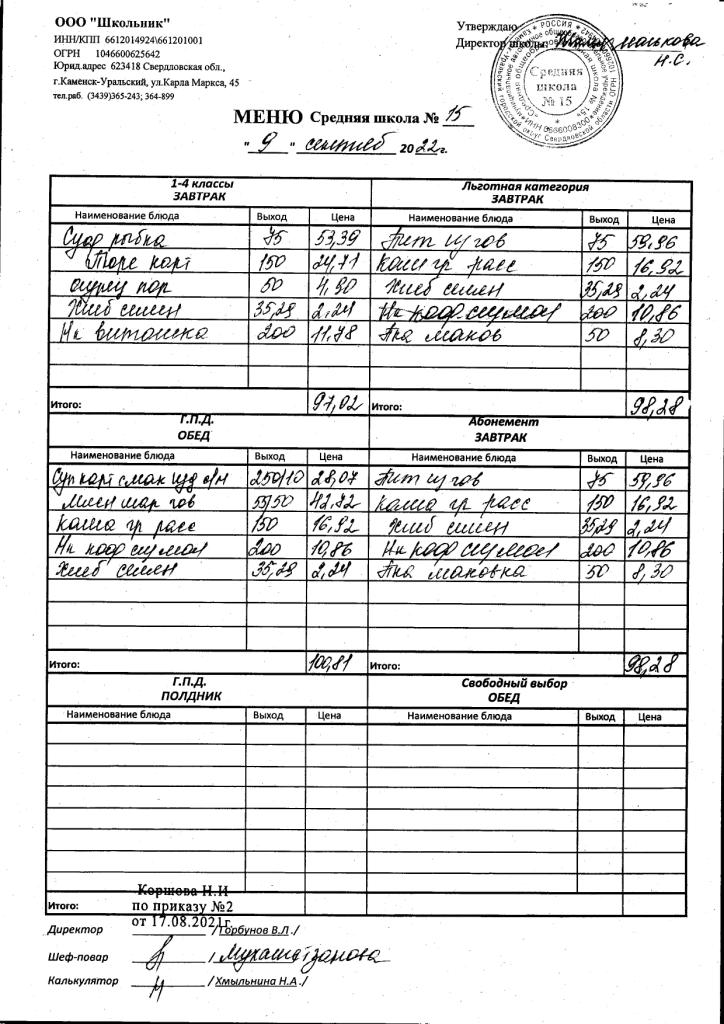 ООО "Школьник"
ИНН/КПП 6612014924\661201001
ОГРН 1046600625642
Юрид.адрес 623418 Свердловская обл.,
г.Каменск-Уральский, ул.Карла Маркса, 45
тел.раб. (3439)365-243; 364-899
Утверждаю
Директор школы:
Н.С.
Средняя
школа
№ 15
МЕНЮ Средняя школа № 15
" 9 " сентяб 2022г.
1-4 классы
ЗАВТРАК
Наименование блюда Выход Цена
рыбка 75 53,39
Пюре карт 150 24,71
огурец пор 50 4,90
Хлеб 35,29 2,24
Нк витошка 200 11,78
Итого: 97,02
Льготная категория
ЗАВТРАК
Наименование блюда Выход Цена
75 59,96
Каша гр расс 150 16,92
Хлеб 35,29 2,24
Нк 200 10,86
50 8,30
Итого: 98,28
Г.П.Д.
ОБЕД
Наименование блюда Выход Цена
Суп карт с мак изд с/м 250/10 28,07
гов 42,72
Каша гр расс 150 16,92
Нк 200 10,86
Хлеб 35,29 2,24
Итого: 100,81
Абонемент
ЗАВТРАК
Наименование блюда Выход Цена
75 59,96
Каша гр расс 150 16,92
Хлеб 35,29 2,24
Нк 200 10,86
маковка 50 8,30
Итого: 98,28
Г.П.Д.
ПОЛДНИК
Наименование блюда Выход Цена
Итого:
Свободный выбор
ОБЕД
Наименование блюда Выход Цена
Коршова Н.И
по приказу №2
от 17.08.2021г.
Директор /Горбунов В.Л./
Шеф-повар /
Калькулятор /Хмыльнина Н.А./